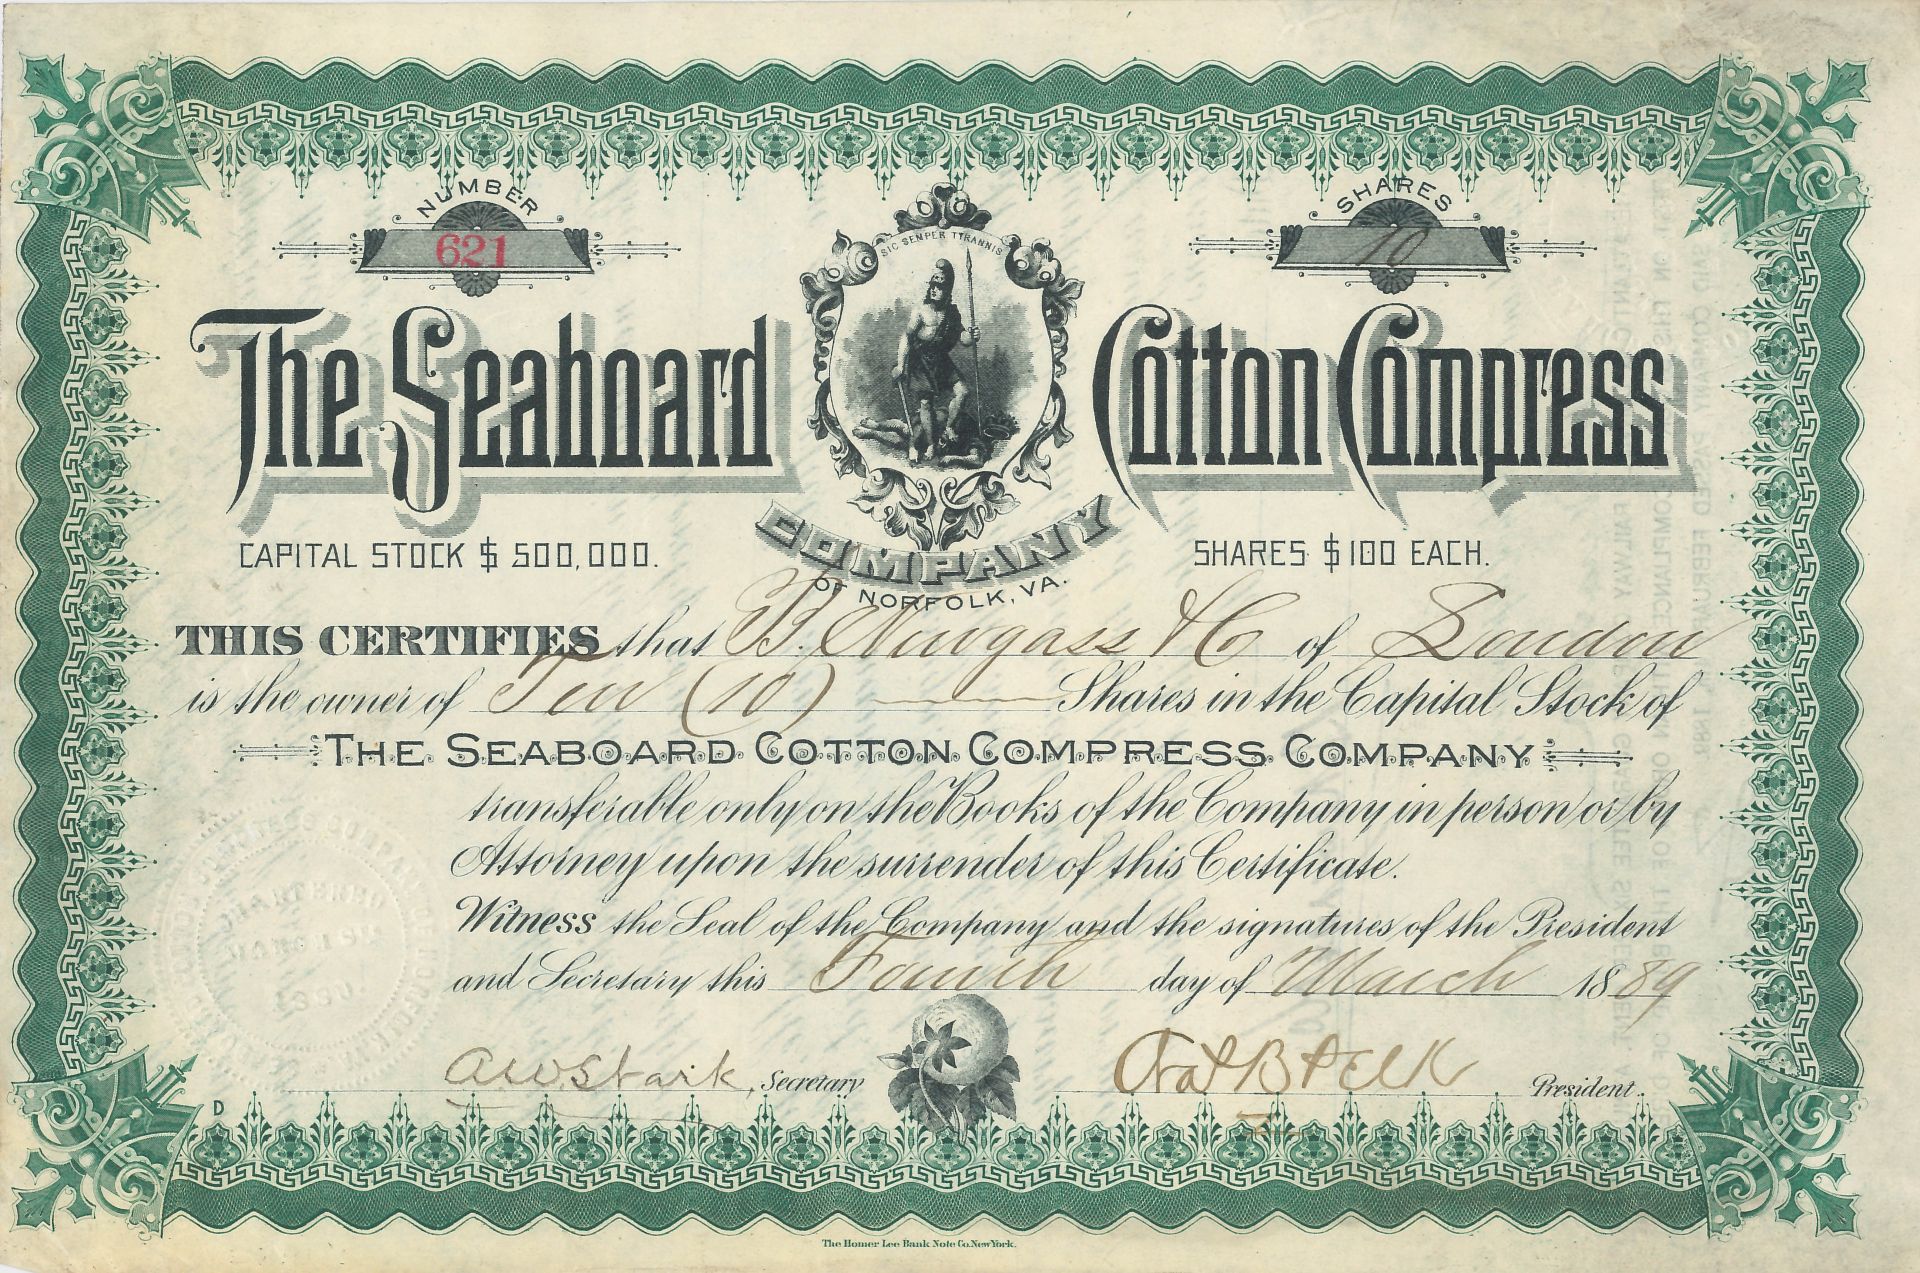 NUMBER
621
SHARES
10
SIC SEMPER TYRANNIS
The Seaboard Cotton Compress
COMPANY
OF NORFOLK, VA.
CAPITAL STOCK $ 500,000.
SHARES $ 100 EACH.
THIS CERTIFIES that B. Newgass & Co of London
is the owner of Ten (10) Shares in the Capital Stock of
THE SEABOARD COTTON COMPRESS COMPANY
transferable only on the Books of the Company in person or by
Attorney upon the surrender of this Certificate.
Witness the Seal of the Company and the signatures of the President
and Secretary this Fourth day of March 1889
A W Stark, Secretary
President.
D
The Homer Lee Bank Note Co. New York.
CHARTERED